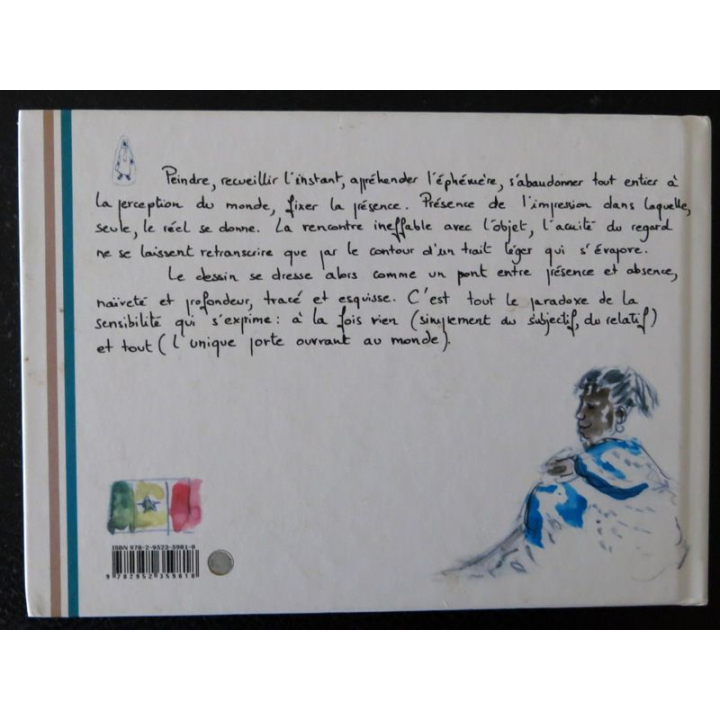 Peindre, recueillir l'instant, appréhender l'éphémère, s'abandonner tout entier à
la perception du monde, fixer la présence. Présence de l'impression dans laquelle,
seule, le réel se donne. La rencontre ineffable avec l'objet, l'acuité du regard
ne se laissent retranscrire que par le contour d'un trait léger qui s'évapore.
Le dessin se dresse alors comme un pont entre présence et absence,
naïveté et profondeur, tracé et esquisse. C'est tout le paradoxe de la
sensibilité qui s'exprime : à la fois rien (simplement du subjectif, du relatif)
et tout (l'unique porte ouvrant au monde).
ISBN 978-2-9523-5981-8
9 782952 359818